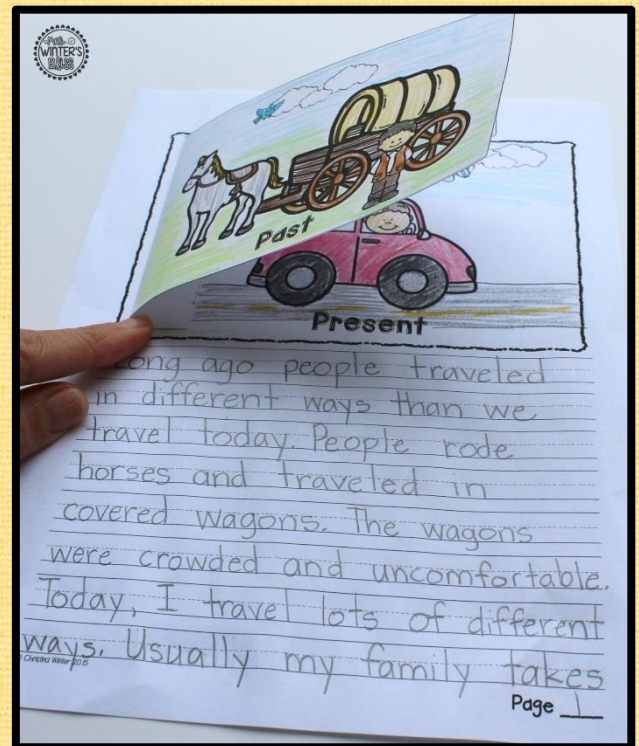 MRS. WINTER'S BLISS
Past
Present
Long ago people traveled
in different ways than we
travel today. People rode
horses and traveled in
covered wagons. The wagons
were crowded and uncomfortable.
Today, I travel lots of different
ways. Usually my family takes
© Christina Winter 2015
Page 1